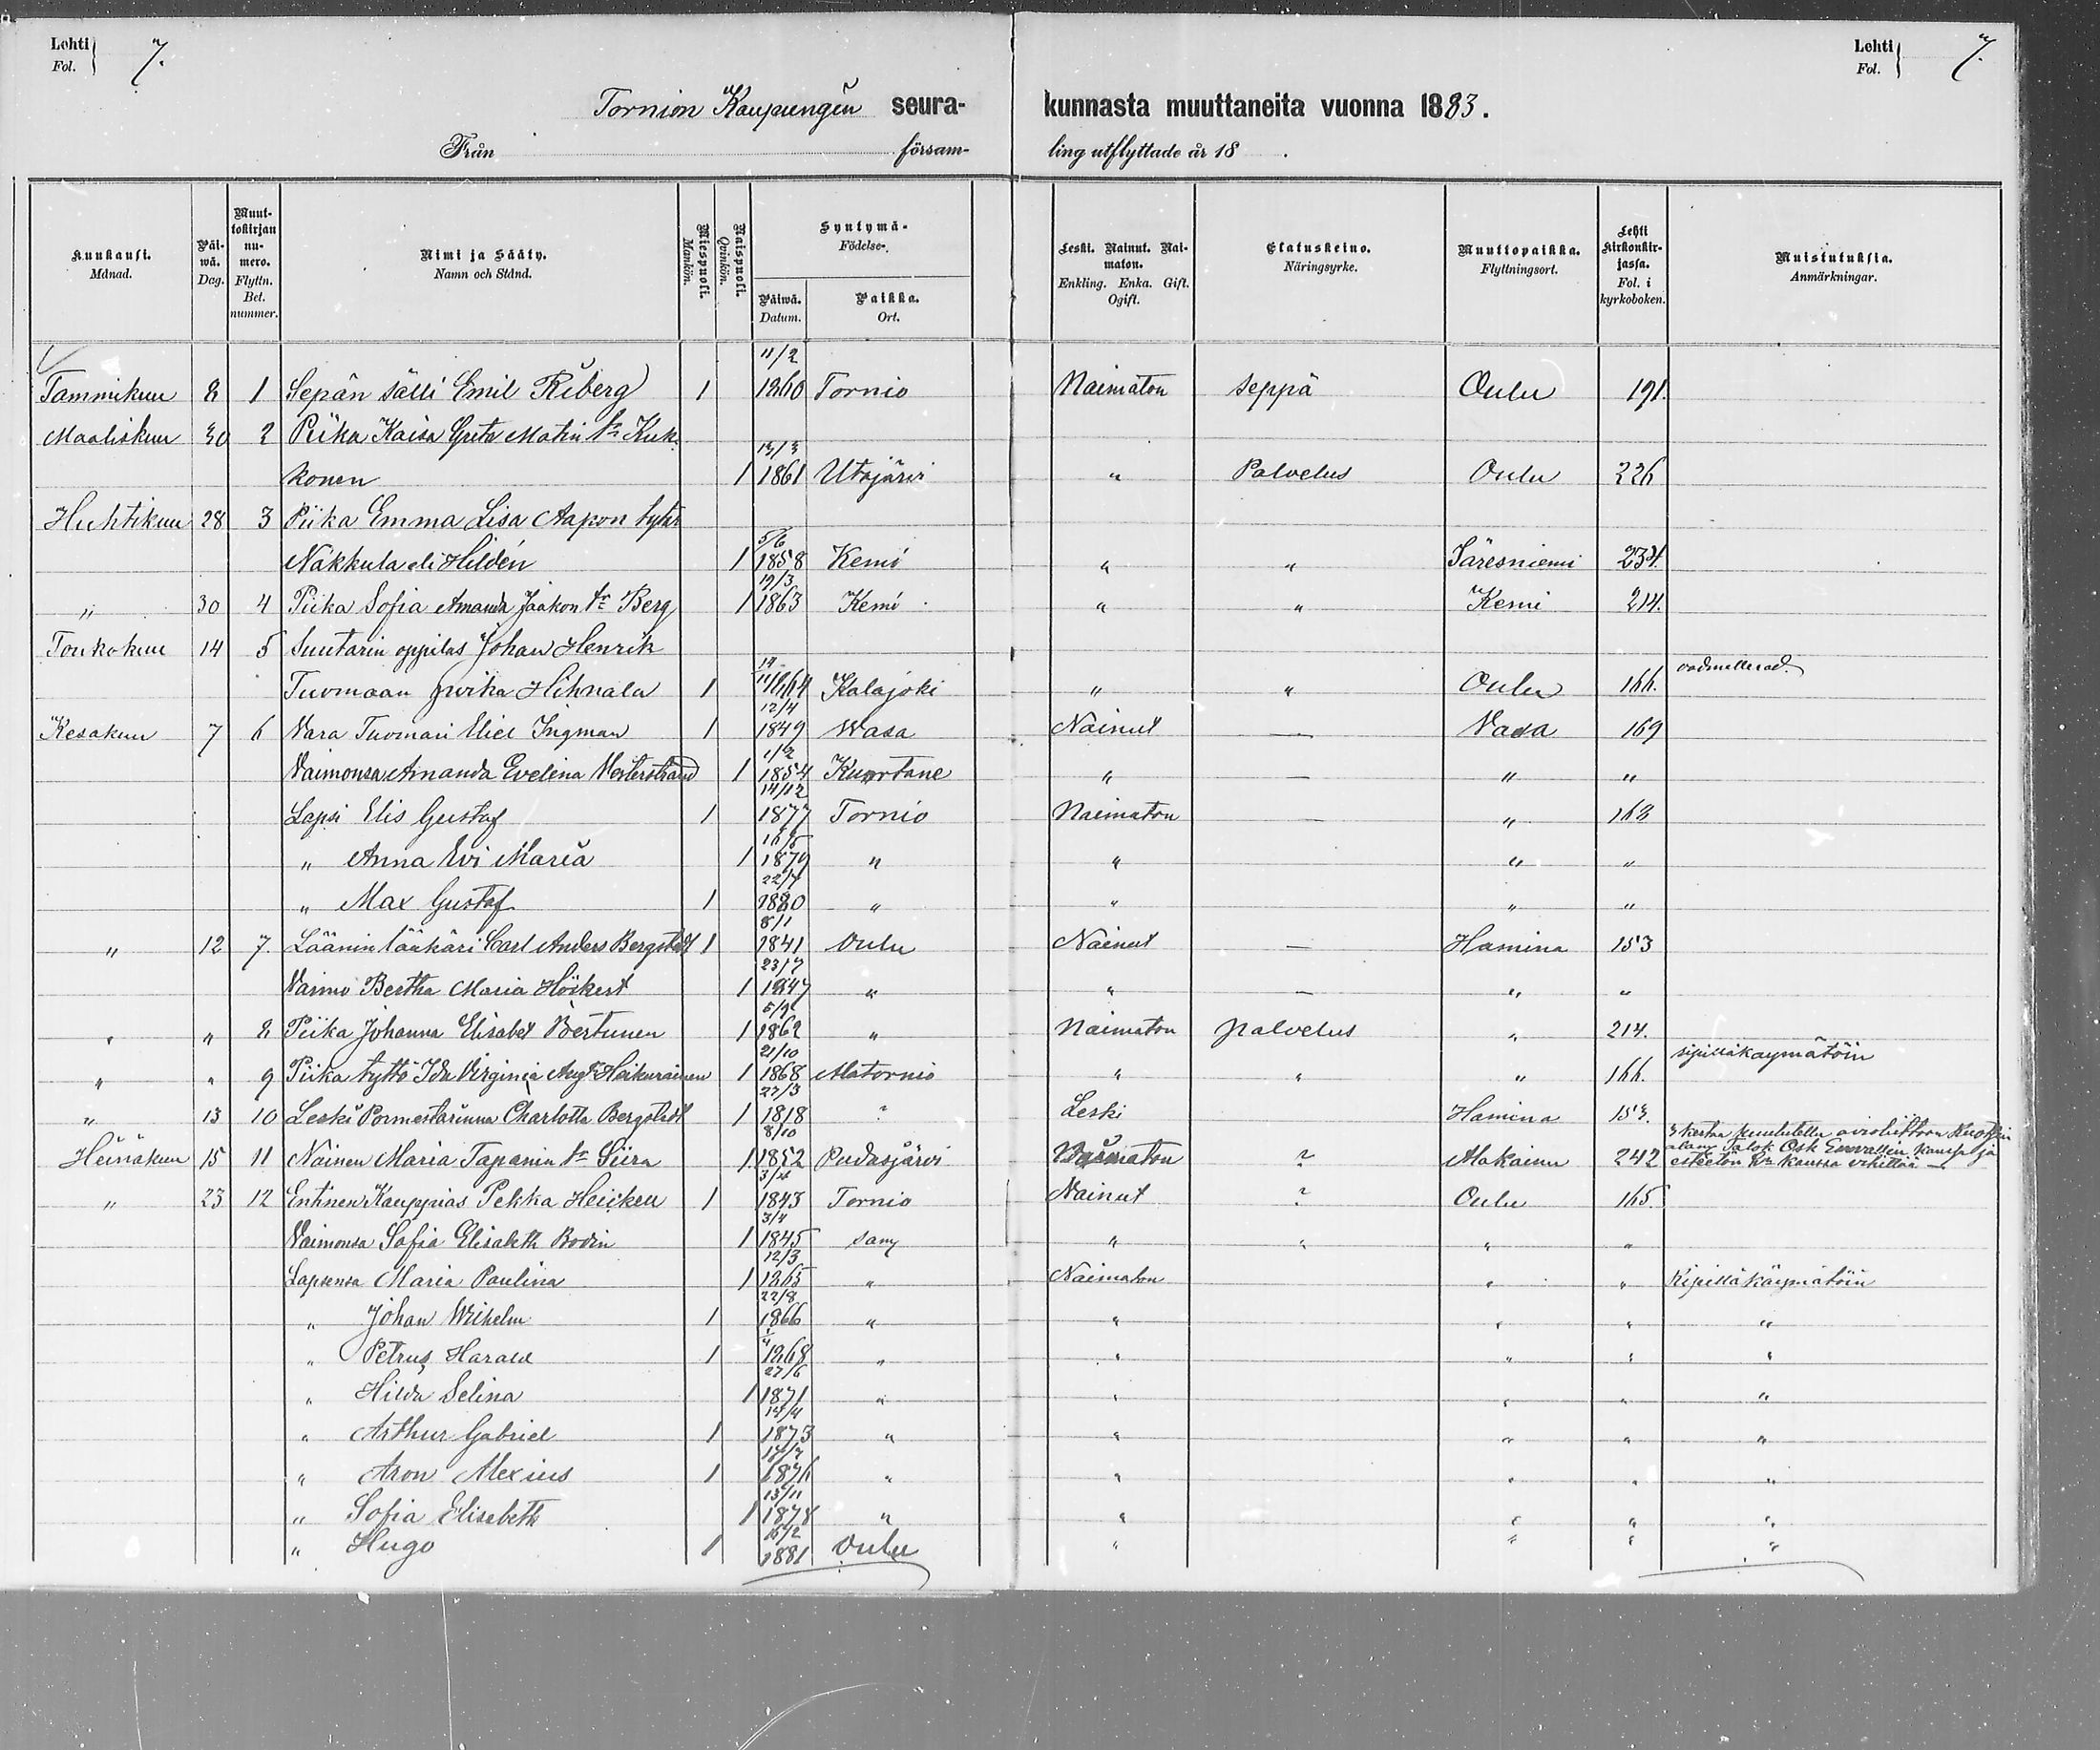 Lehti Fol. 7.
Lehti Fol. 7.
Tornion Kaupungin seura- kunnasta muuttaneita vuonna 1883.
Från församling utflyttade år 18 .
Kuukausi. Månad.
Päiwä. Dag.
Muuttokirjan numero. Flyttn. Bet. nummer.
Nimi ja Sääty. Namn och Stånd.
Miespuoli. Mankön.
Naispuoli. Qvinkön.
Syntymä- Födelse-
Päiwä. Datum.
Paikka. Ort.
Leski. Nainut. Naimaton. Enkling. Enka. Gift. Ogift.
Elatuskeino. Näringsyrke.
Muuttopaikka. Flyttningsort.
Lehti kirkonkirjassa. Fol. i kyrkoboken.
Muistutuksia. Anmärkningar.
Tammikuu 8 1 Sepän sälli Emil Riberg 1 11/2 1860 Tornio Naimaton seppä Oulu 191.
Maaliskuu 30 2 Piika Kaisa Greta Matin tr Kuk
konen 1 13/3 1861 Utajärvi " Palvelus Oulu 226
Huhtikuu 28 3 Piika Emma Lisa Aapon tytär
Nakkula eli Hildén 1 5/6 1858 Kemi " " Säresniemi 234.
" 30 4 Piika Sofia Amanda Jaakon tr Berg 1 19/3 1863 Kemi " " Kemi 214.
Toukokuu 14 5 Suutarin oppilas Johan Henrik
Tuomaan poika Hihnala 1 1864 Kalajoki " " Oulu 166.
Kesäkuu 7 6 Vara Tuomari Eliel Ingman 1 12/4 1849 Wasa Nainut — Vasa 169
Vaimonsa Amanda Evelina Westerstrand 1 1854 Kuortane " — " "
Lapsi Elis Gustaf 1 14/12 1877 Tornio Naimaton — " 168
" Anna Evi Maria 1 16/5 1879 " " " "
" Max Gustaf 1 22/7 1880 " " " "
" 12 7. Läänin lääkäri Carl Anders Bergstedt 1 8/1 1841 Oulu Nainut — Hamina 153
Vaimo Bertha Maria Höckert 1 23/7 1847 " " — " "
" " 8 Piika Johanna Elisabet Poertunen 1 5/9 1862 " Naimaton palvelus " 214.
" " 9 Piika tyttö Ida Virginia Aug. Heikurainen 1 21/10 1868 Alatornio " " " 166. ripilläkäymätöin
" 13 10 Leski Pormestarinna Charlotta Bergstedt 1 27/3 1818 ? Leski Hamina 153.
Heinäkuu 15 11 Nainen Maria Tapanin tr Siira 1 8/10 1852 Pudasjärvi Naimaton ? Alakainu 242
" 23 12 Entinen Kauppias Pekka Heicken 1 1843 Tornio Nainut ? Oulu 165
Vaimonsa Sofia Elisabeth Bodin 1 3/4 1845 sam " " " "
Lapsensa Maria Paulina 1 12/3 1865 " Naimaton " " Ripilläkäymätöin
" Johan Wilhelm 1 22/8 1866 " " " " "
" Petrus Harald 1 1868 " " " " "
" Hilda Selina 1 27/6 1871 " " " " "
" Arthur Gabriel 1 14/4 1873 " " " " "
" Aron Alexius 1 17/7 1876 " " " " "
" Sofia Elisabeth 1 13/11 1878 " " " " "
" Hugo 1 15/2 1881 Oulu " " " "